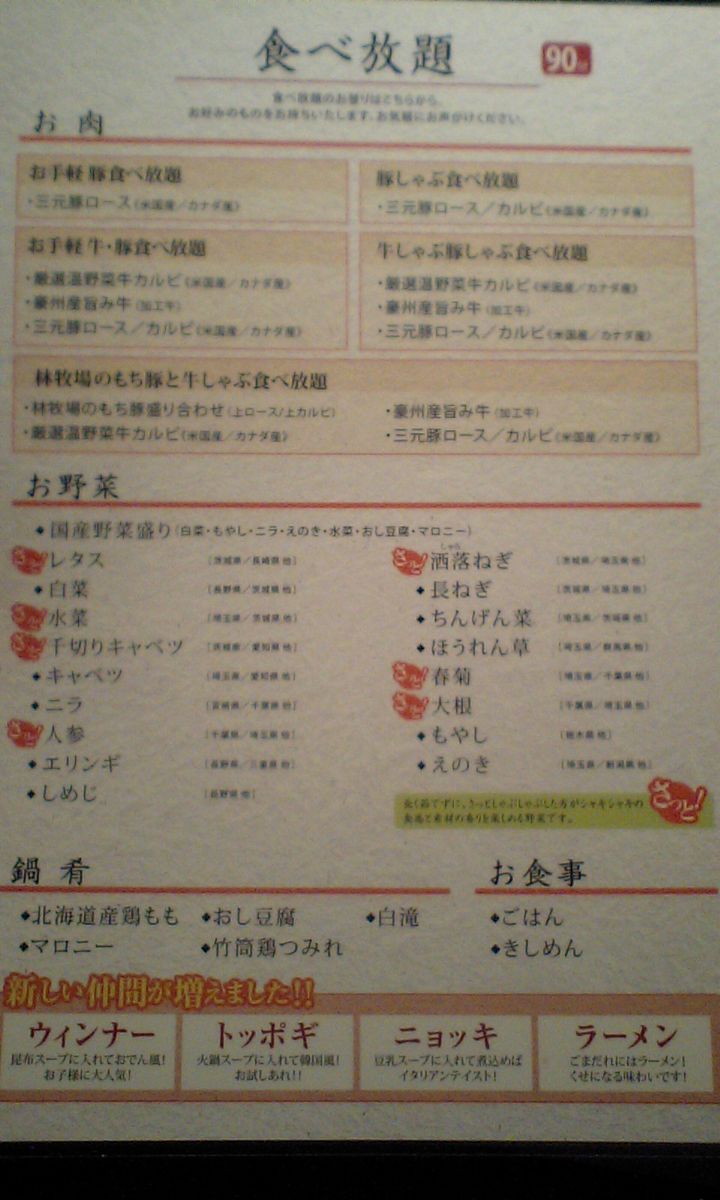 食べ放題 90分
食べ放題のお替りはこちらから。
お好みのものをお持ちいたします。お気軽にお声がけください。
お肉
お手軽 豚食べ放題
・三元豚ロース(米国産/カナダ産)
豚しゃぶ食べ放題
・三元豚ロース/カルビ(米国産/カナダ産)
お手軽 牛・豚食べ放題
・厳選温野菜牛カルビ(米国産/カナダ産)
・豪州産旨み牛(加工牛)
・三元豚ロース/カルビ(米国産/カナダ産)
牛しゃぶ豚しゃぶ食べ放題
・厳選温野菜牛カルビ(米国産/カナダ産)
・豪州産旨み牛(加工牛)
・三元豚ロース/カルビ(米国産/カナダ産)
林牧場のもち豚と牛しゃぶ食べ放題
・林牧場のもち豚盛り合わせ(上ロース/上カルビ)
・厳選温野菜牛カルビ(米国産/カナダ産)
・豪州産旨み牛(加工牛)
・三元豚ロース/カルビ(米国産/カナダ産)
お野菜
◆国産野菜盛り(白菜・もやし・ニラ・えのき・水菜・おし豆腐・マロニー)
さっと! レタス [茨城県/長崎県 他]
◆白菜 [長野県/茨城県 他]
さっと! 水菜 [埼玉県/茨城県 他]
さっと! 千切りキャベツ [茨城県/愛知県 他]
◆キャベツ [埼玉県/愛知県 他]
◆ニラ [宮崎県/千葉県 他]
さっと! 人参 [千葉県/埼玉県 他]
◆エリンギ [長野県/三重県 他]
◆しめじ [長野県 他]
しゃら
さっと! 洒落ねぎ [茨城県/埼玉県 他]
◆長ねぎ [茨城県/埼玉県 他]
◆ちんげん菜 [埼玉県/茨城県 他]
◆ほうれん草 [埼玉県/群馬県 他]
さっと! 春菊 [埼玉県/千葉県 他]
さっと! 大根 [千葉県/埼玉県 他]
◆もやし [栃木県 他]
◆えのき [埼玉県/新潟県 他]
さっと!
長く茹でずに、さっとしゃぶしゃぶした方がシャキシャキの
食感と素材の香りを楽しめる野菜です。
鍋肴
◆北海道産鶏もも ◆おし豆腐 ◆白滝
◆マロニー ◆竹筒鶏つみれ
お食事
◆ごはん
◆きしめん
新しい仲間が増えました!!
ウィンナー
昆布スープに入れておでん風!
お子様に大人気!
トッポギ
火鍋スープに入れて韓国風!
お試しあれ!!
ニョッキ
豆乳スープに入れて煮込めば
イタリアンテイスト!
ラーメン
ごまだれにはラーメン!
くせになる味わいです!